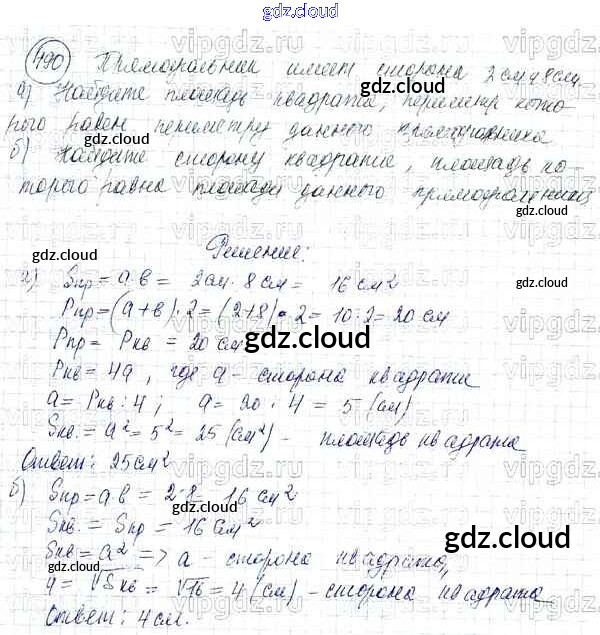 gdz.cloud
490 Прямоугольник имеет стороны 2 см и 8 см
а) Найдите площадь квадрата, периметр кото-
рого равен периметру данного прямоугольника
б) Найдите сторону квадрата, площадь ко-
торого равна площади данного прямоугольника
Решение:
а) Sпр = a·b = 2см · 8см = 16 см²
Pпр = (a+b)·2 = (2+8)·2 = 10·2 = 20 см
Pпр = Pкв = 20 см
Pкв = 4a, где a - сторона квадрата
a = Pкв : 4; a = 20 : 4 = 5 (см)
Sкв. = a² = 5² = 25 (см²) - площадь квадрата
Ответ: 25 см²
б) Sпр = a b = 2·8 = 16 см²
Sкв. = Sпр = 16 см²
Sкв = a² => a - сторона квадрата,
a = √Sкв = √16 = 4 (см) - сторона квадрата
Ответ: 4 см.